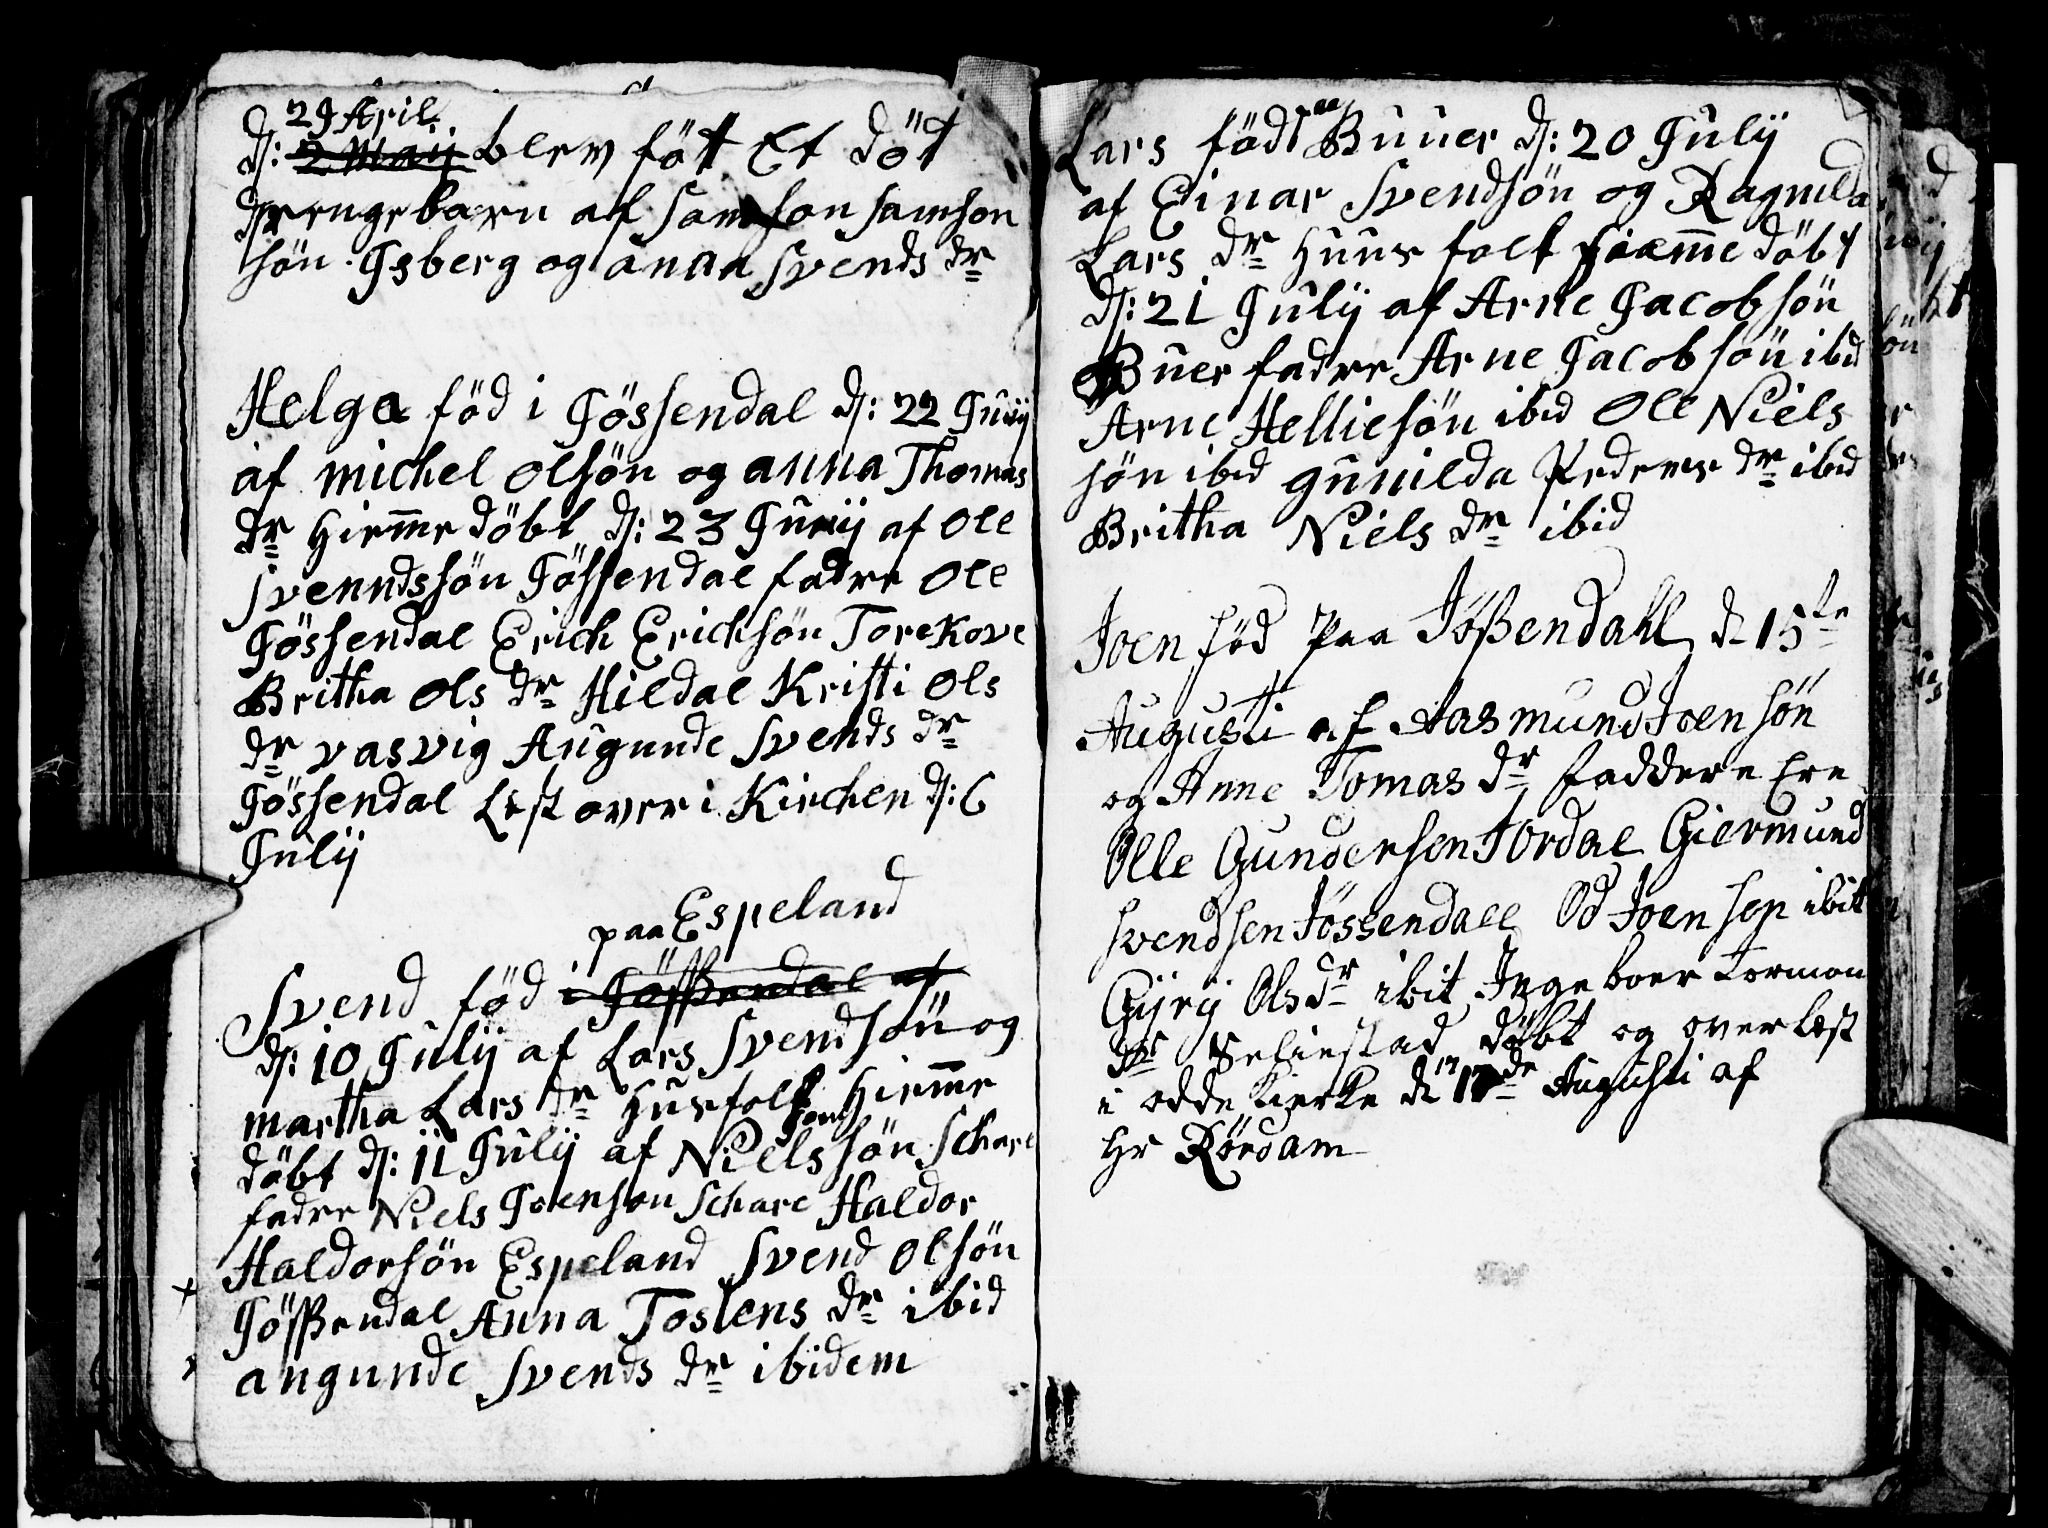 29 Aril
d: 2 Maij blev föt Et döt
drengebarn af Samson samson
sön Isberg og anna Svends dr
Helga föd i Jössendal d: 22 Junij
af michel olsön og anna Thomas
dr Hiem̅e döbt d: 23 Junij af Ole
Svenndssön Jössendal fadre Ole
Jössendal Erich Erichsön Torekove
Britha Ols dr Hildal Kristi Ols
dr vasvig Augunde Svends dr
Jössendal Lest over i Kirchen d: 6
Julij
paa Espeland
Svend föd i Jösßendal af
d: 10 Julij af Lars Svendsön og
martha Lars dr Husfolk Hiem̅e
döbt d: 11 Julij af Niels Joen sön Schare
fadre Niels Joenson Schare Haldor
Haldorsön Espeland Svend Olsön
Jösßendal Anna Tostens dr ibid
angunde Svends dr ibidem
Lars född aa Buuer d: 20 Julij
af Einar Svendsön og Ragnilda
Lars dr Huus folk hiæm̅e döbt
d: 21 Julij af Arne Jacobsön
Buer fadre Arne Jacobsön ibid
Arne Helliesön ibid Ole Niels
sön ibid gunilda Peders dr ibid
Britha Niels dr ibid
Joenföd Paa Jößendahl d 15te
Augusti af Aasmund Joensön
og Anne Tomas dr faddere Ere
Olle Gundersen Jordal Giermund
Svendsen Jössendall Od Joensen ibit
Gyrij Ols dr ibit Ingeboer Tormon
dr Seliestad döbt og overlæst
i odde Kierke d 17de Augusti af
Hr Rördam